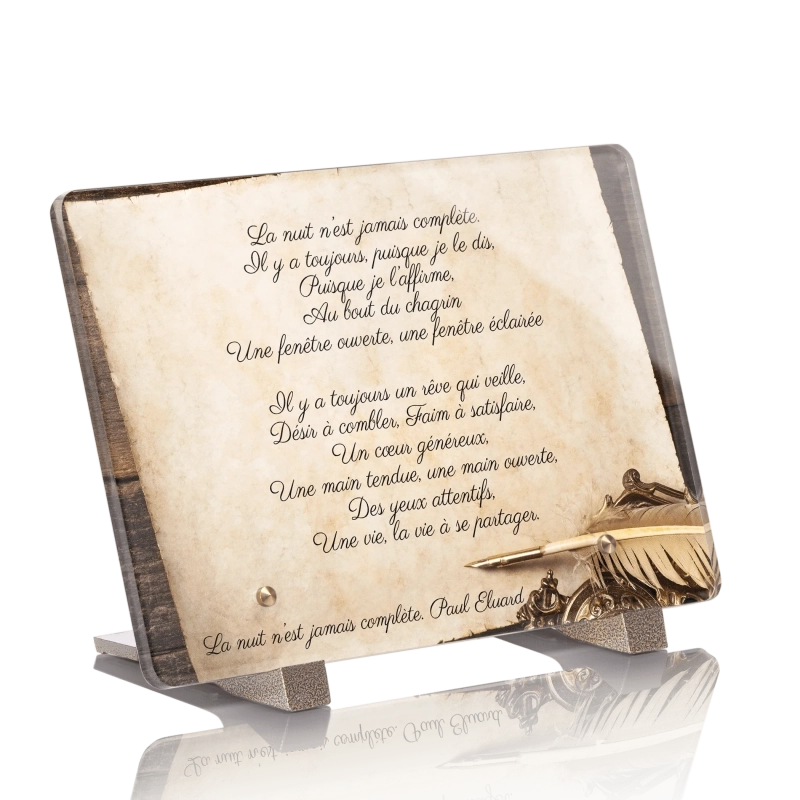 La nuit n'est jamais complète.
Il y a toujours, puisque je le dis,
Puisque je l'affirme,
Au bout du chagrin
Une fenêtre ouverte, une fenêtre éclairée
Il y a toujours un rêve qui veille,
Désir à combler, Faim à satisfaire,
Un cœur généreux,
Une main tendue, une main ouverte,
Des yeux attentifs,
Une vie, la vie à se partager.
La nuit n'est jamais complète. Paul Eluard